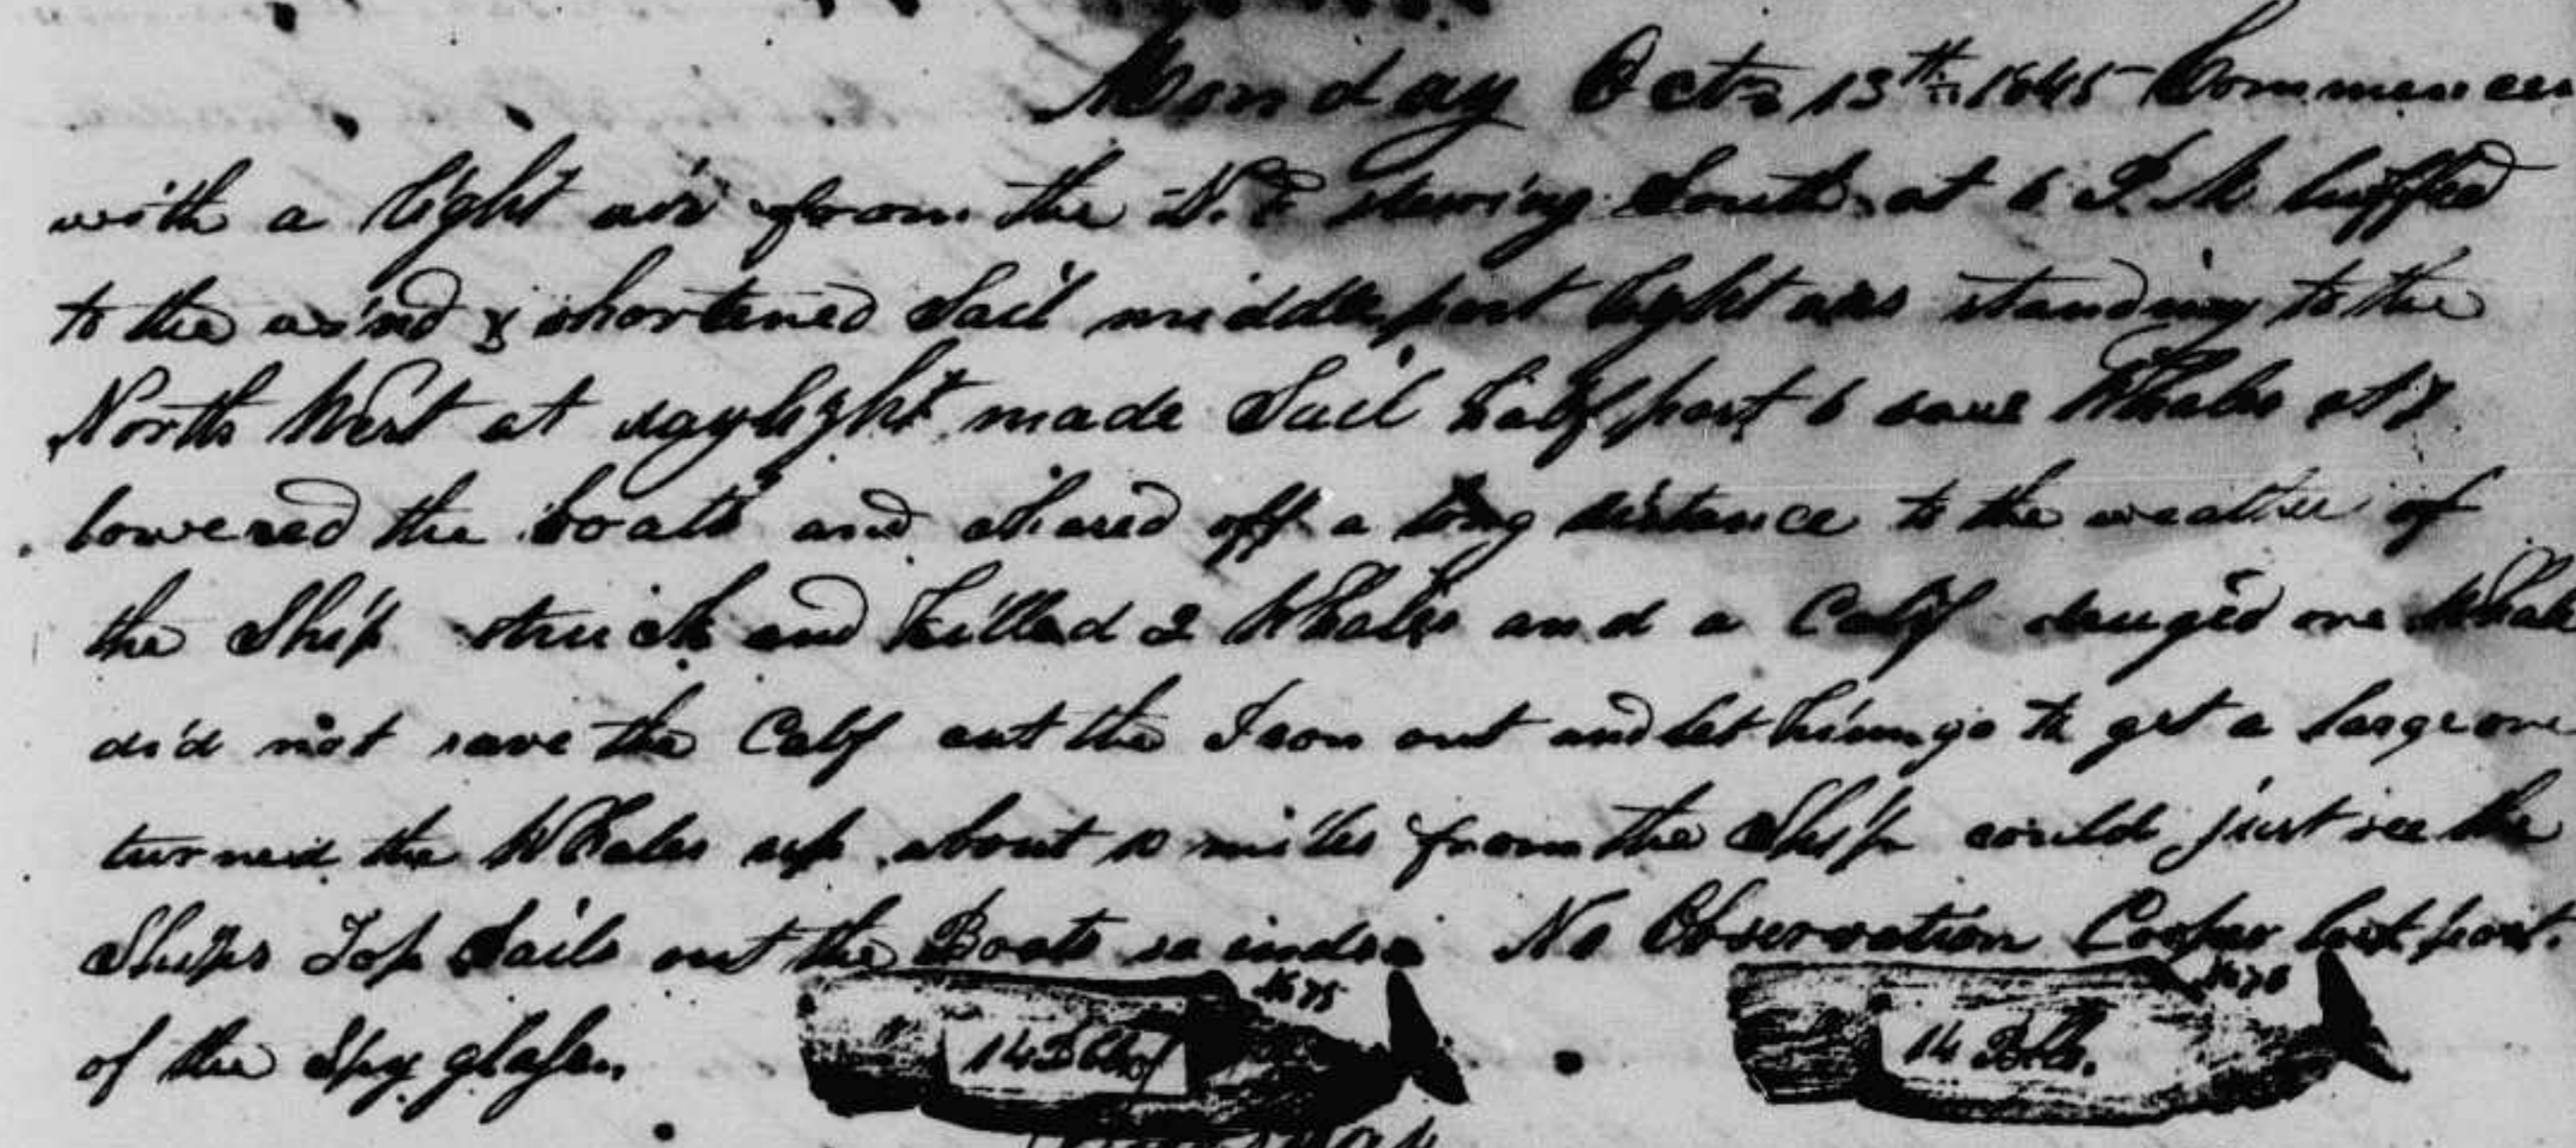 Monday Octr 13th 1845 Commences
with a light air from the N.E stearing South at 6 P.M luffed
to the wind & shortened Sail middle part light airs standing to the
North West at daylight made Sail half past 6 saw Whales at 7
lowered the boats and chased off a long distance to the weather of
the Ship struck and Killed 2 Whales and a Calf one Whale
did not save the Calf cut the Iron out and let him go to get a large one
turned the Whales up about 10 miles from the Ship could just see the
Ships Top Sails out the Boats No Observation Cooper lost part
of the Spy glass.
14 Bbls
14 Bbls.